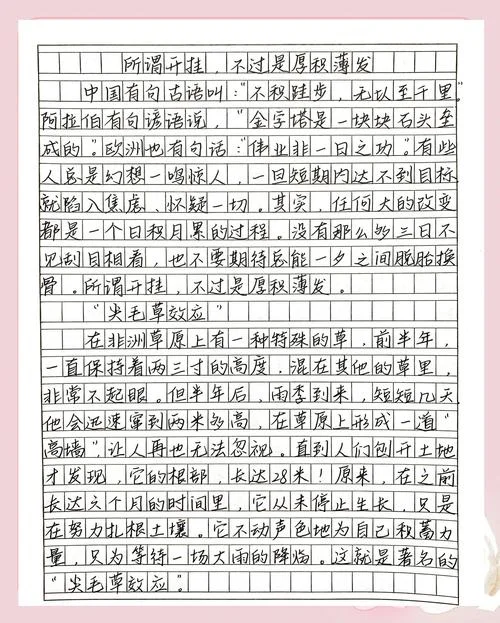 所谓开挂，不过是厚积薄发
中国有句古语叫："不积跬步，无以至千里。"
阿拉伯有句谚语说，"金字塔是一块块石头垒
成的"。欧洲也有句话："伟业非一日之功"。有些
人总是幻想一鸣惊人，一旦短期内达不到目标
就陷入焦虑、怀疑一切。其实，任何大的改变
都是一个日积月累的过程。没有那么多三日不
见刮目相看，也不要期待总能一夕之间脱胎换
骨。所谓开挂，不过是厚积薄发。
"尖毛草效应"
在非洲草原上有一种特殊的草，前半年，
一直保持着两三寸的高度，混在其他的草里，
非常不起眼。但半年后，雨季到来，短短几天
他会迅速窜到两米多高，在草原上形成一道"
高墙"，让人再也无法忽视。直到人们刨开土地
才发现，它的根部，长达28米！原来，在之前
长达六个月的时间里，它从未停止生长，只是
在努力扎根土壤。它不动声色地为自己积蓄力
量，只为等待一场大雨的降临。这就是著名的
"尖毛草效应"。